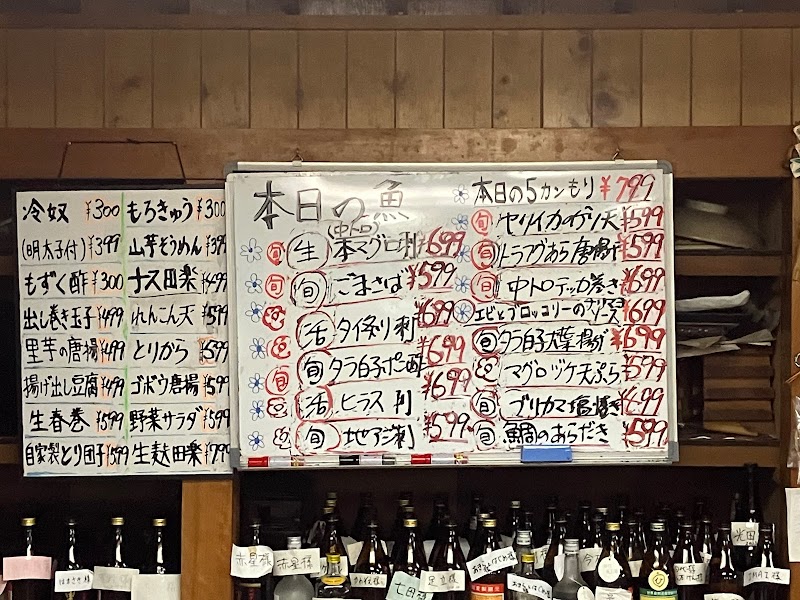 冷奴 ¥300
(明太子付) ¥399
もずく酢 ¥300
出し巻き玉子 ¥499
里芋の唐揚 ¥499
揚げ出し豆腐 ¥499
生春巻 ¥599
自家製とり団子 ¥599
もろきゅう ¥300
山芋そうめん ¥399
ナス田楽 ¥499
れんこん天 ¥599
とりから ¥599
ゴボウ唐揚 ¥599
野菜サラダ ¥599
生麩田楽 ¥799
本日の魚
(中トロ)
旬 生 本マグロ刺 ¥699
旬 旬 ごまさば ¥599
活 タイ刺 ¥699
旬 タラ白子ポン酢 ¥699
活 ヒラス刺 ¥699
旬 地アジ刺 ¥599
本日の5カンもり ¥799
旬 ヤリイカのゲソ天 ¥599
旬 トラフグあら唐揚げ ¥599
旬 中トロテッカ巻き ¥699
エビとブロッコリーの ¥699
旬 タラ白子大葉揚げ ¥699
マグロヅケ天ぷら ¥599
旬 ブリカマ塩焼き ¥699
旬 鯛のあらだき ¥599
赤星様
赤星様
足立様
光田